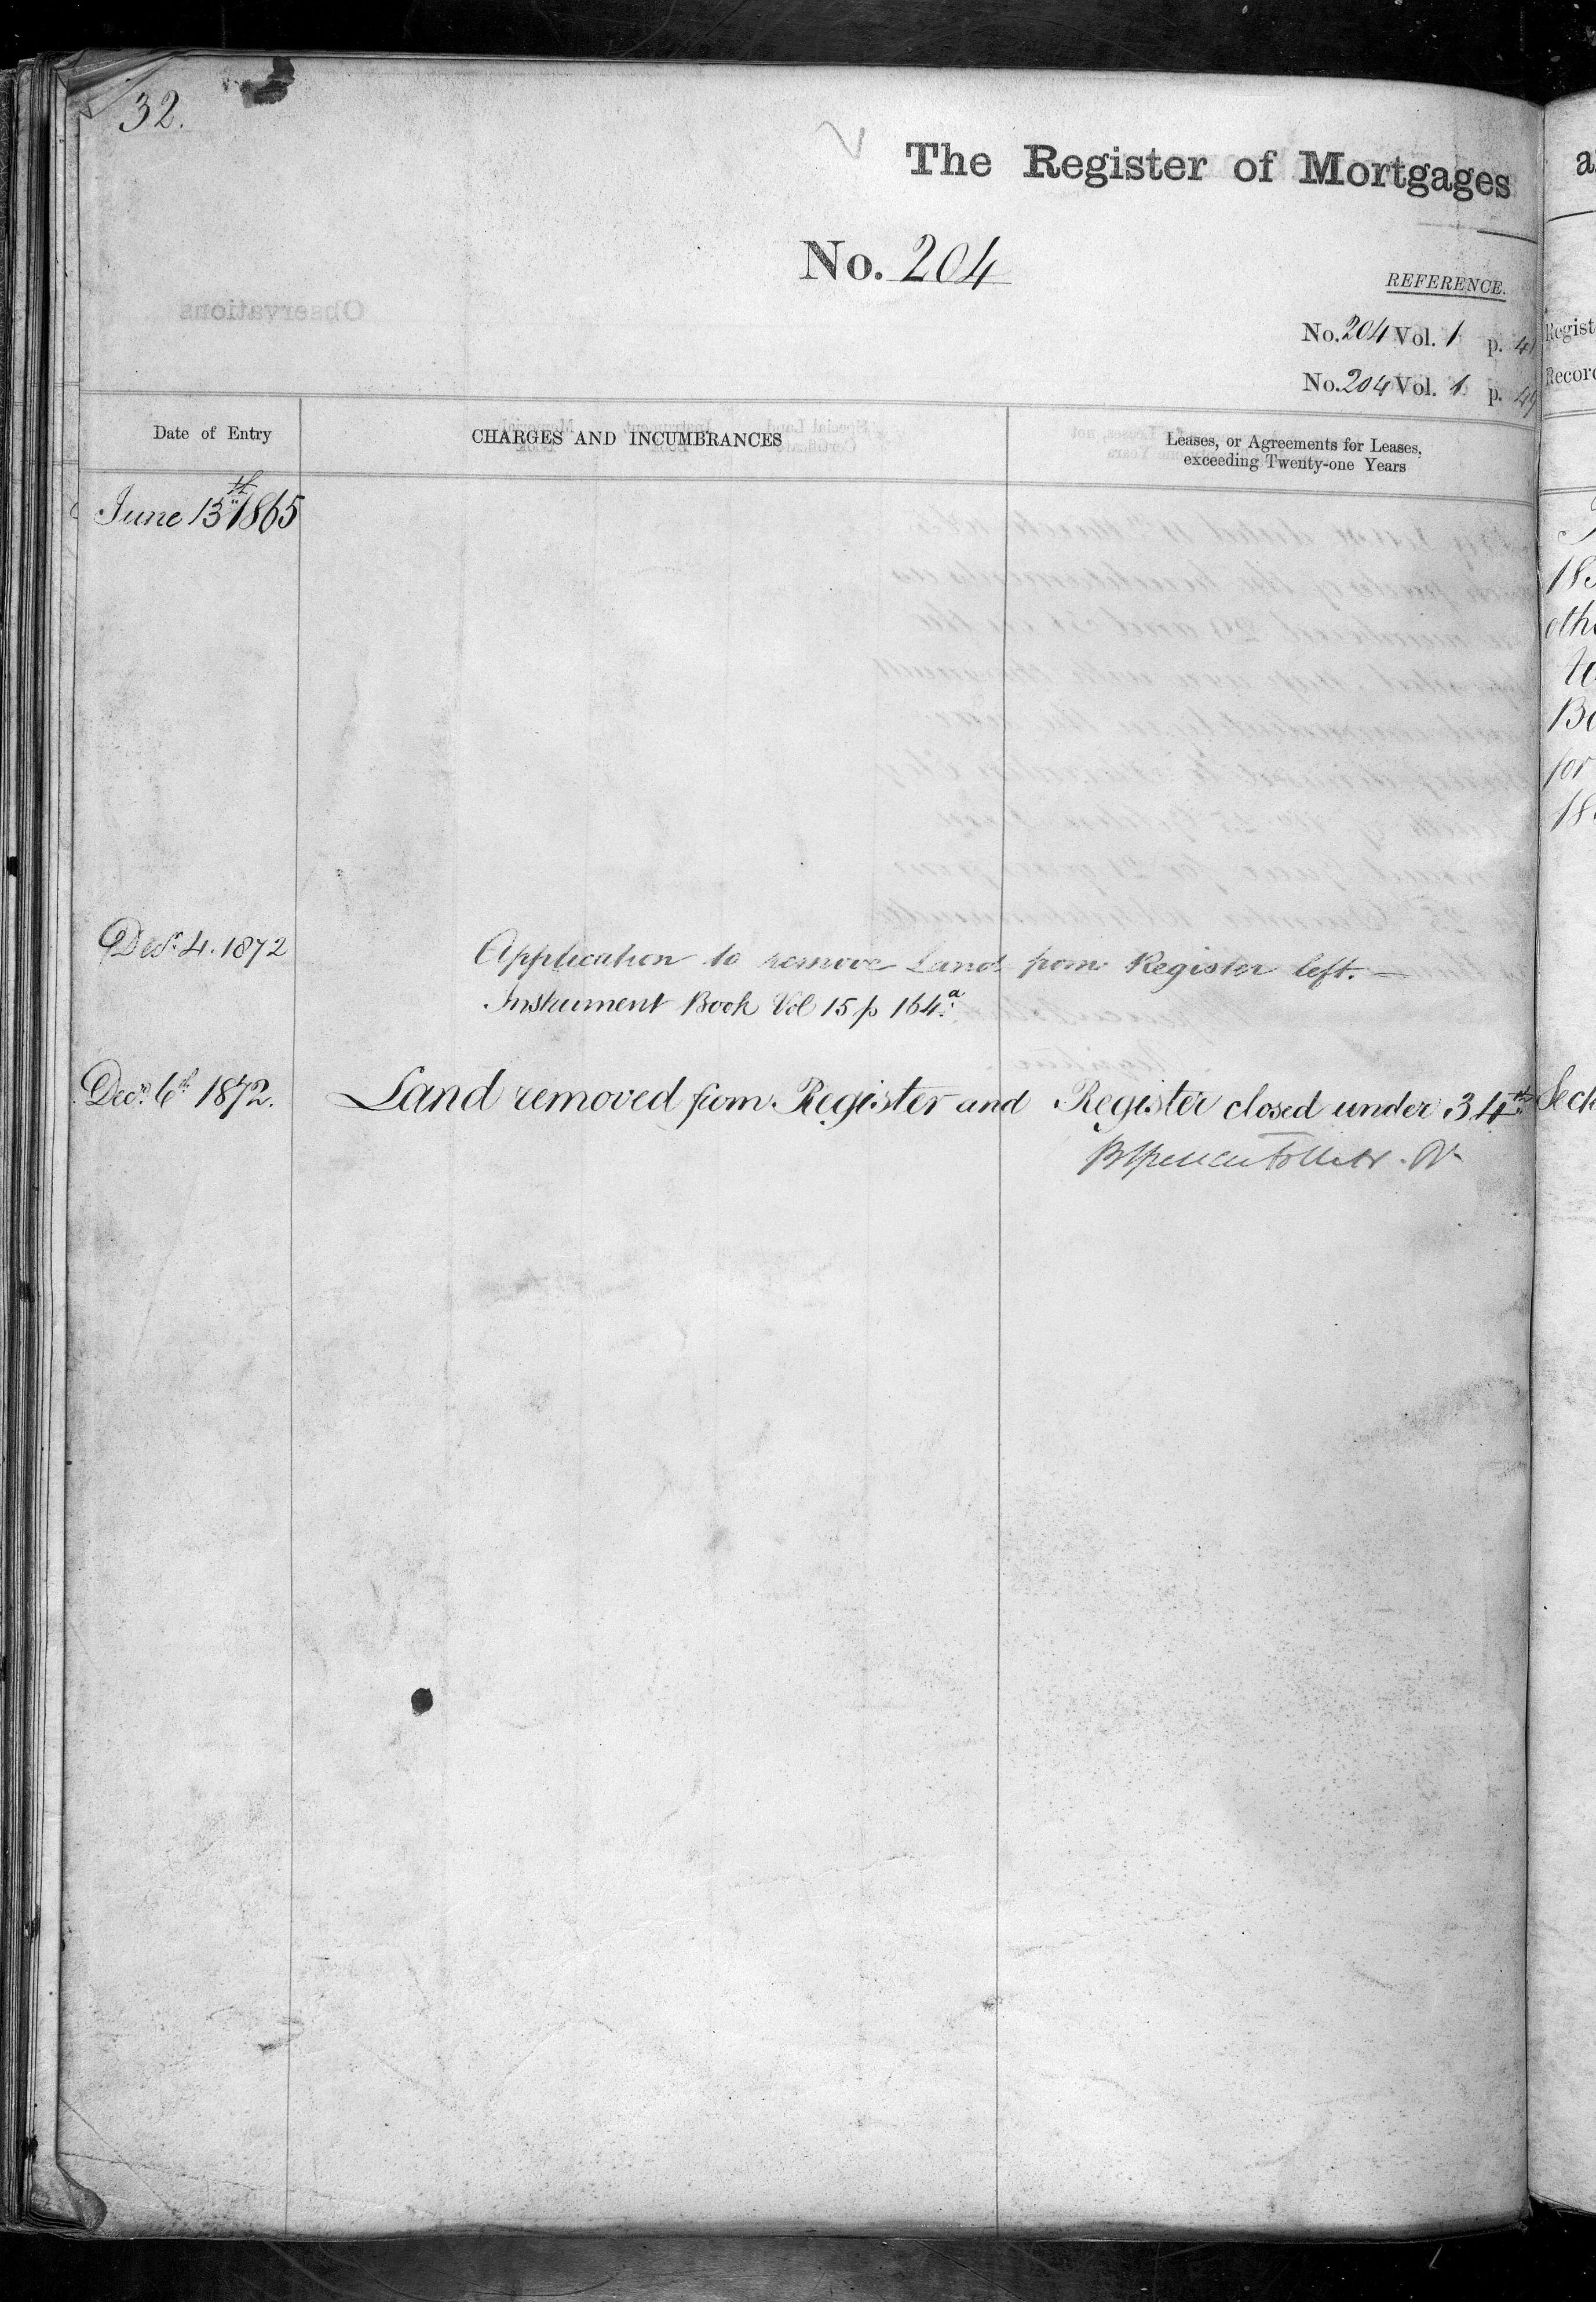 32.
The Register of Mortgages
No. 204
REFERENCE.
No. 204 Vol. 1 p. 41
No. 204 Vol. 1 p. 49
Date of Entry
CHARGES AND INCUMBRANCES
Leases, or Agreements for Leases,
exceeding Twenty-one Years
June 13th 1865
Decr. 4. 1872 Application to remove Land from Register left. —
Instrument Book Vol 15 p 164a.
Decr. 6th 1872. Land removed from Register and Register closed under 34th Sect
a
Regist
Record
185
oth
for
18